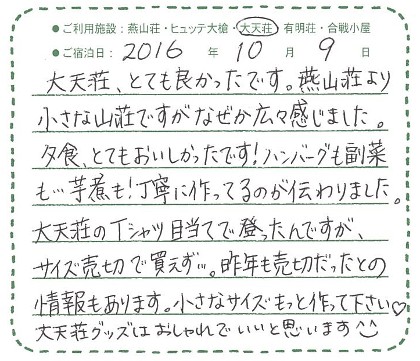 ●ご利用施設：燕山荘・ヒュッテ大槍・大天荘・有明荘・合戦小屋
●ご宿泊日： 2016 年 10 月 9 日
大天荘、とても良かったです。燕山荘より
小さな山荘ですがなぜか広々感じました。
夕食、とてもおいしかったです！ハンバーグも副菜
も…芋煮も！丁寧に作ってるのが伝わりました。
大天荘のTシャツ目当てで登ったんですが、
サイズ売切で買えず…。昨年も売切だったとの
情報もあります。小さなサイズもっと作って下さい♡
大天荘グッズはおしゃれでいいと思います